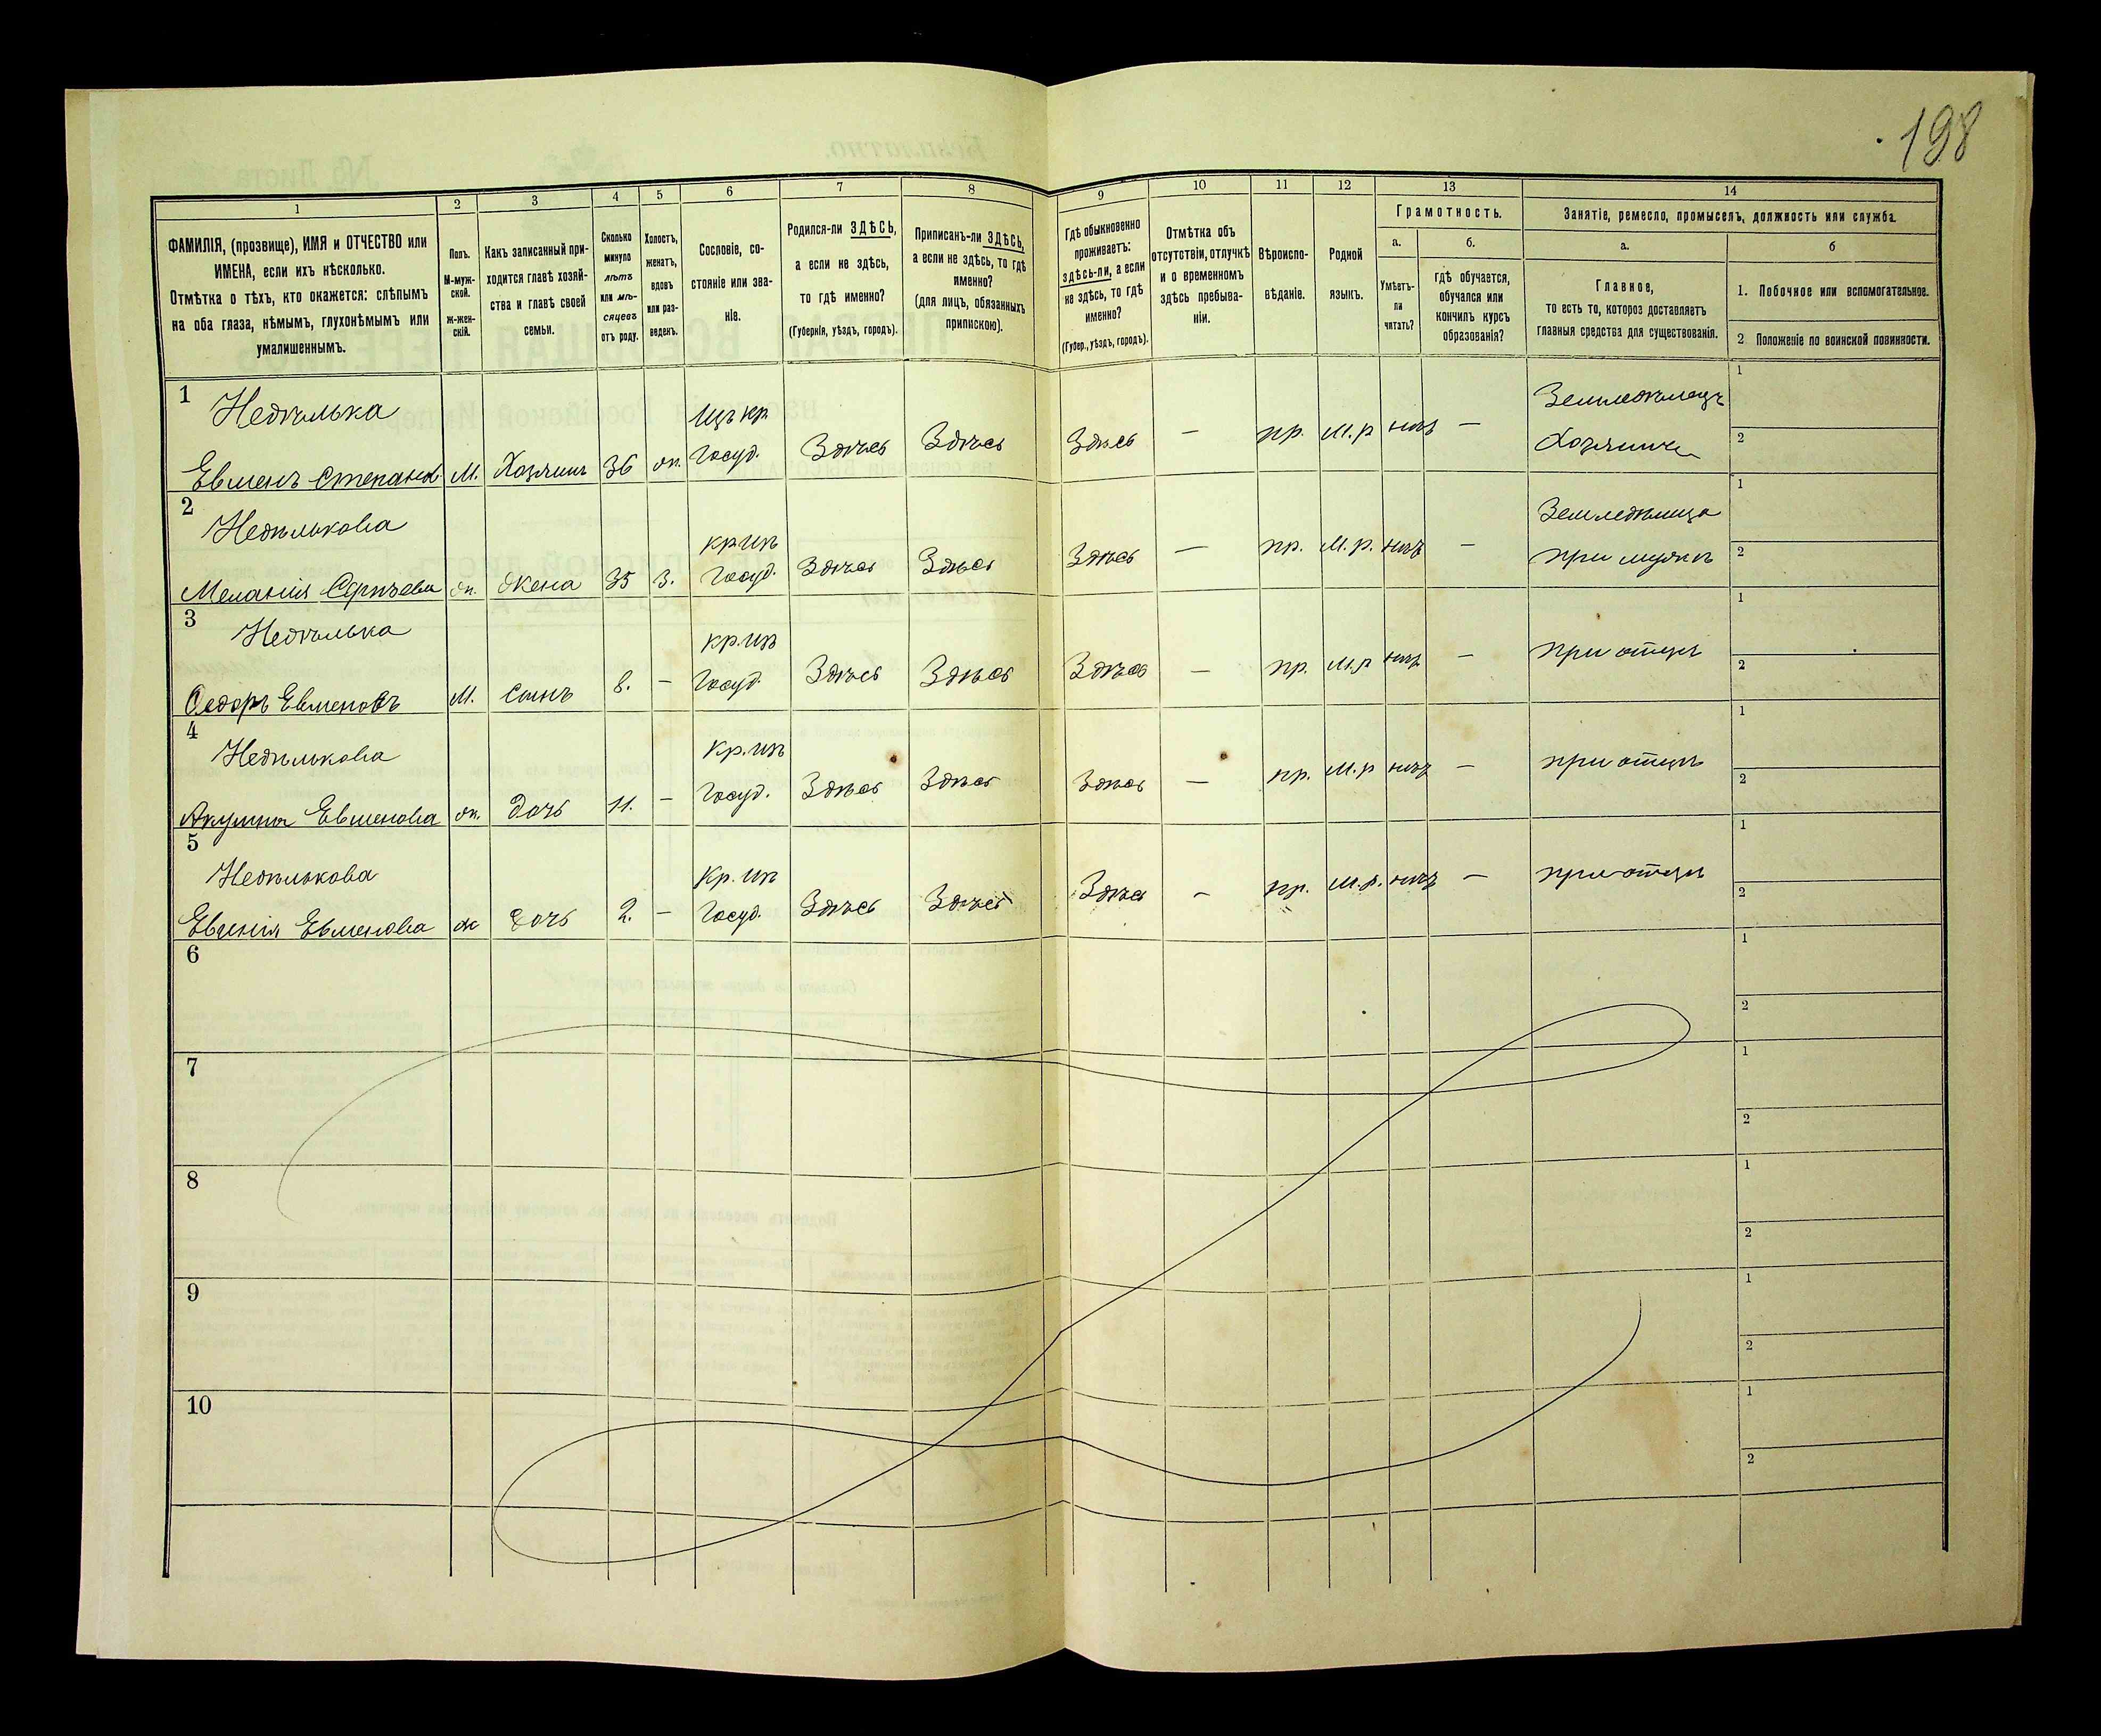 198
1 2 3 4 5 6 7 8 9 10 11 12 13 14
ФАМИЛІЯ, (прозвище), ИМЯ и ОТЧЕСТВО или
ИМЕНА, если ихъ нѣсколько.
Отмѣтка о тѣхъ, кто окажется: слѣпымъ
на оба глаза, нѣмымъ, глухонѣмымъ или
умалишеннымъ.
Полъ.
М-муж-
ской.
ж-жен-
скій.
Какъ записанный при-
ходится главѣ хозяй-
ства и главѣ своей
семьи.
Сколько
минуло
лѣтъ
или мѣ-
сяцевъ
отъ роду.
Холостъ,
женатъ,
вдовъ
или раз-
веденъ.
Сословіе, со-
стояніе или зва-
ніе.
Родился-ли ЗДѢСЬ,
а если не здѣсь,
то гдѣ именно?
(Губернія, уѣздъ, городъ).
Приписанъ-ли ЗДѢСЬ,
а если не здѣсь, то гдѣ
именно?
(для лицъ, обязанныхъ
припискою).
Гдѣ обыкновенно
проживаетъ:
здѣсь-ли, а если
не здѣсь, то гдѣ
именно?
(Губер., уѣздъ, городъ).
Отмѣтка объ
отсутствіи, отлучкѣ
и о временномъ
здѣсь пребыва-
ніи.
Вѣроиспо-
вѣданіе.
Родной
языкъ.
Грамотность.
а.
Умѣетъ-
ли
читать?
б.
гдѣ обучается,
обучался или
кончилъ курсъ
образованія?
Занятіе, ремесло, промыселъ, должность или служба.
а.
Главное,
то есть то, которое доставляетъ
главныя средства для существованія.
б
1. Побочное или вспомогательное.
2 Положеніе по воинской повинности.
1 Недѣлька
Евменъ Степанов М. Хозяинъ 36 ж. кр. Госуд. Здѣсь Здѣсь Здѣсь — пр. м.р нѣт — Земледѣлецъ
Хозяинъ
1
2
2 Недѣлькова
Меланія Сергѣева ж. жена 35 з. кр.изъ Госуд. Здѣсь Здѣсь Здѣсь — пр. м.р. нѣт — Земледѣлица
при мужѣ
1
2
3 Недѣлька
Ѳедоръ Евменовъ М. сынъ 8. — кр.изъ Госуд. Здѣсь Здѣсь Здѣсь — пр. м.р нѣт — при отцѣ
1
2
4 Недѣлькова
Акулина Евменова ж. дочь 11. — кр.изъ Госуд. Здѣсь Здѣсь Здѣсь — пр. м.р нѣт — при отцѣ
1
2
5 Недѣлькова
Евгенія Евменова ж дочь 2. — кр.изъ Госуд. Здѣсь Здѣсь Здѣсь — пр. м.р. нѣт — при отцѣ
1
2
6
1
2
7
1
2
8
1
2
9
1
2
10
1
2